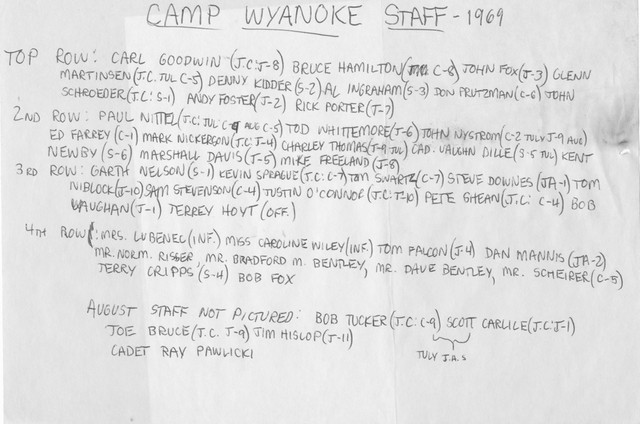 CAMP WYANOKE STAFF - 1969
TOP ROW: CARL GOODWIN (J.C: J-8) BRUCE HAMILTON (C-8) JOHN FOX (J-3) GLENN
MARTINSEN (J.C. JUL C-5) DENNY KIDDER (S-2) AL INGRAHAM (S-3) DON PRUTZMAN (C-6) JOHN
SCHROEDER (J.C: S-1) ANDY FOSTER (J-2) RICK PORTER (J-7)
2ND ROW: PAUL NITTEL (J.C: JUL AUG C-5) TOD WHITTEMORE (J-6) JOHN NYSTROM (C-2 JULY J-9 AUG)
ED FARREY (C-1) MARK NICKERSON (J.C: J-4) CHARLEY THOMAS (J-9 JUL) CAD. VAUGHN DILLE (S-5 JUL) KENT
NEWBY (S-6) MARSHALL DAVIS (J-5) MIKE FREELAND (J-8)
3RD ROW: GARTH NELSON (S-1) KEVIN SPRAGUE (J.C: C-7) TOM SWARTZ (C-7) STEVE DOWNES (JA-1) TOM
NIBLOCK (J-10) SAM STEVENSON (C-4) JUSTIN O'CONNOR (J.C: J-10) PETE GHEAN (J.C: C-4) BOB
VAUGHAN (J-1) TERREY HOYT (OFF.)
4TH ROW: MRS. LUBENEC (INF.) MISS CAROLINE WILEY (INF.) TOM FALCON (J-4) DAN MANNIS (JA-2)
MR. NORM. RISSER, MR. BRADFORD M. BENTLEY, MR. DAVE BENTLEY, MR. SCHEIRER (C-5)
TERRY CRIPPS (S-4) BOB FOX
AUGUST STAFF NOT PICTURED: BOB TUCKER (J.C: C-9) SCOTT CARLILE (J.C: J-1)
JOE BRUCE (J.C. J-9) JIM HISLOP (J-11)
CADET RAY PAWLICKI
JULY J.A.S